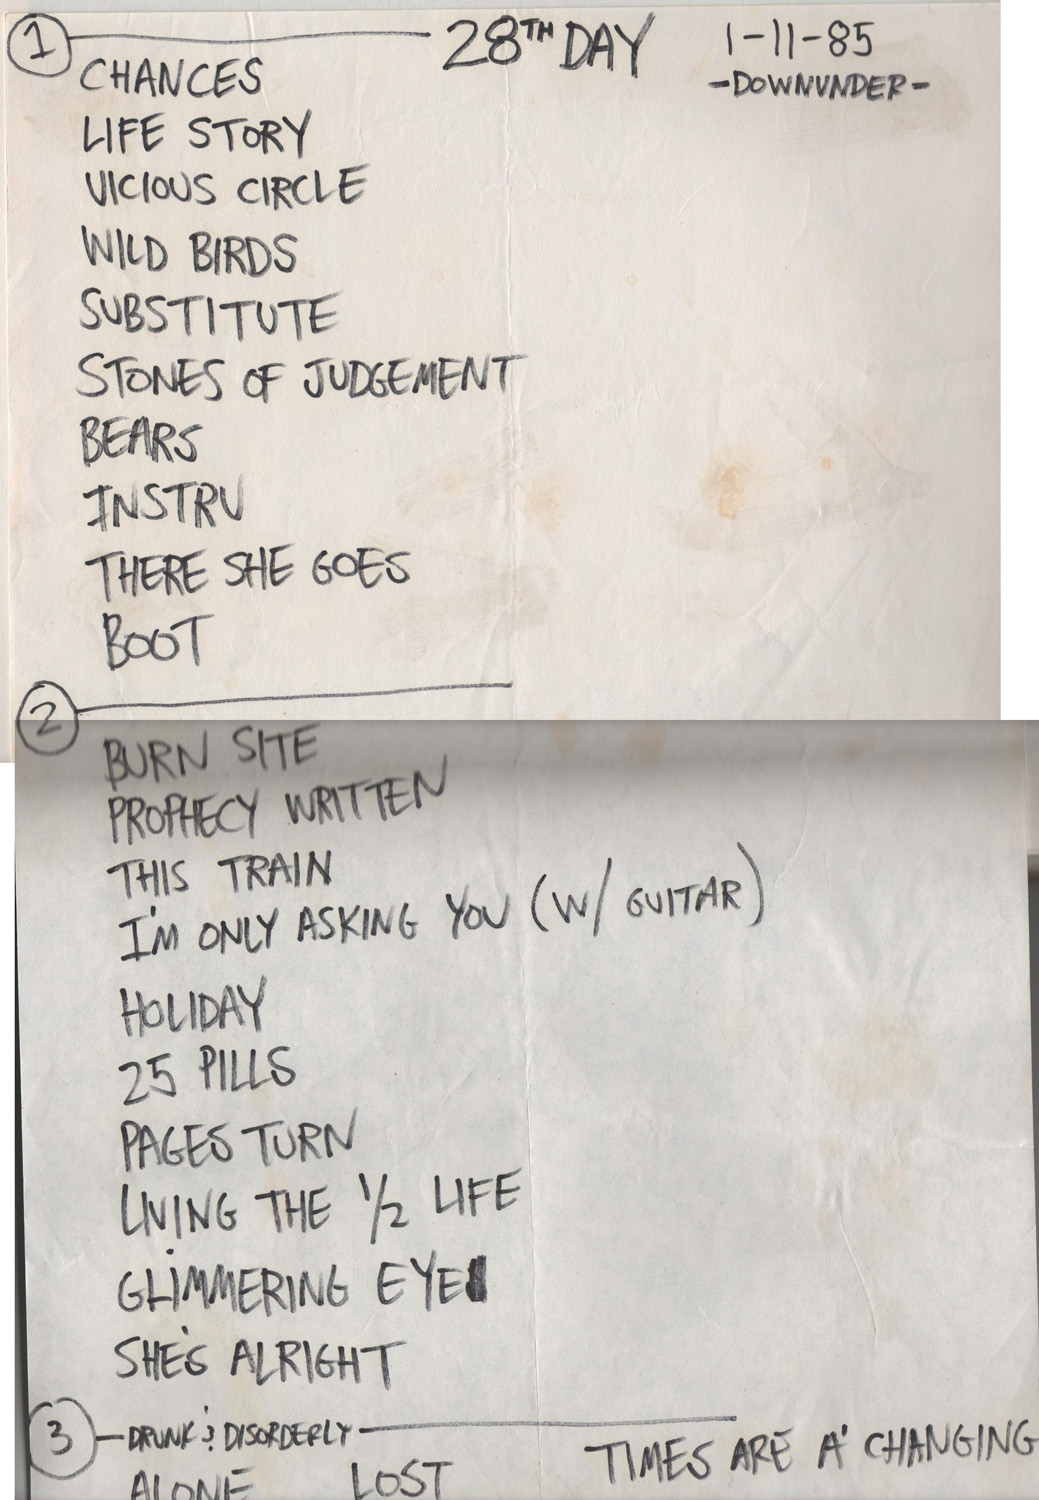 1 28TH DAY 1-11-85
-DOWNUNDER-
CHANCES
LIFE STORY
VICIOUS CIRCLE
WILD BIRDS
SUBSTITUTE
STONES OF JUDGEMENT
BEARS
INSTRU
THERE SHE GOES
BOOT
2
BURN SITE
PROPHECY WRITTEN
THIS TRAIN
I'M ONLY ASKING YOU (W/ GUITAR)
HOLIDAY
25 PILLS
PAGES TURN
LIVING THE 1/2 LIFE
GLIMMERING EYE
SHE'S ALRIGHT
3 - DRUNK & DISORDERLY -
ALONE LOST TIMES ARE A' CHANGING